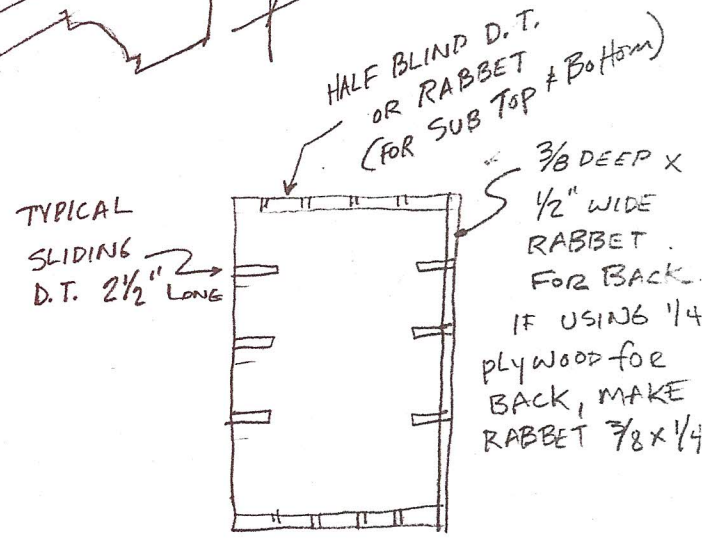 HALF BLIND D.T.
OR RABBET
(FOR SUB TOP & BOTTOM)
TYPICAL
SLIDING
D.T. 2 1/2" LONG
3/8 DEEP X
1/2" WIDE
RABBET.
FOR BACK.
IF USING 1/4
PLYWOOD FOR
BACK, MAKE
RABBET 3/8 X 1/4